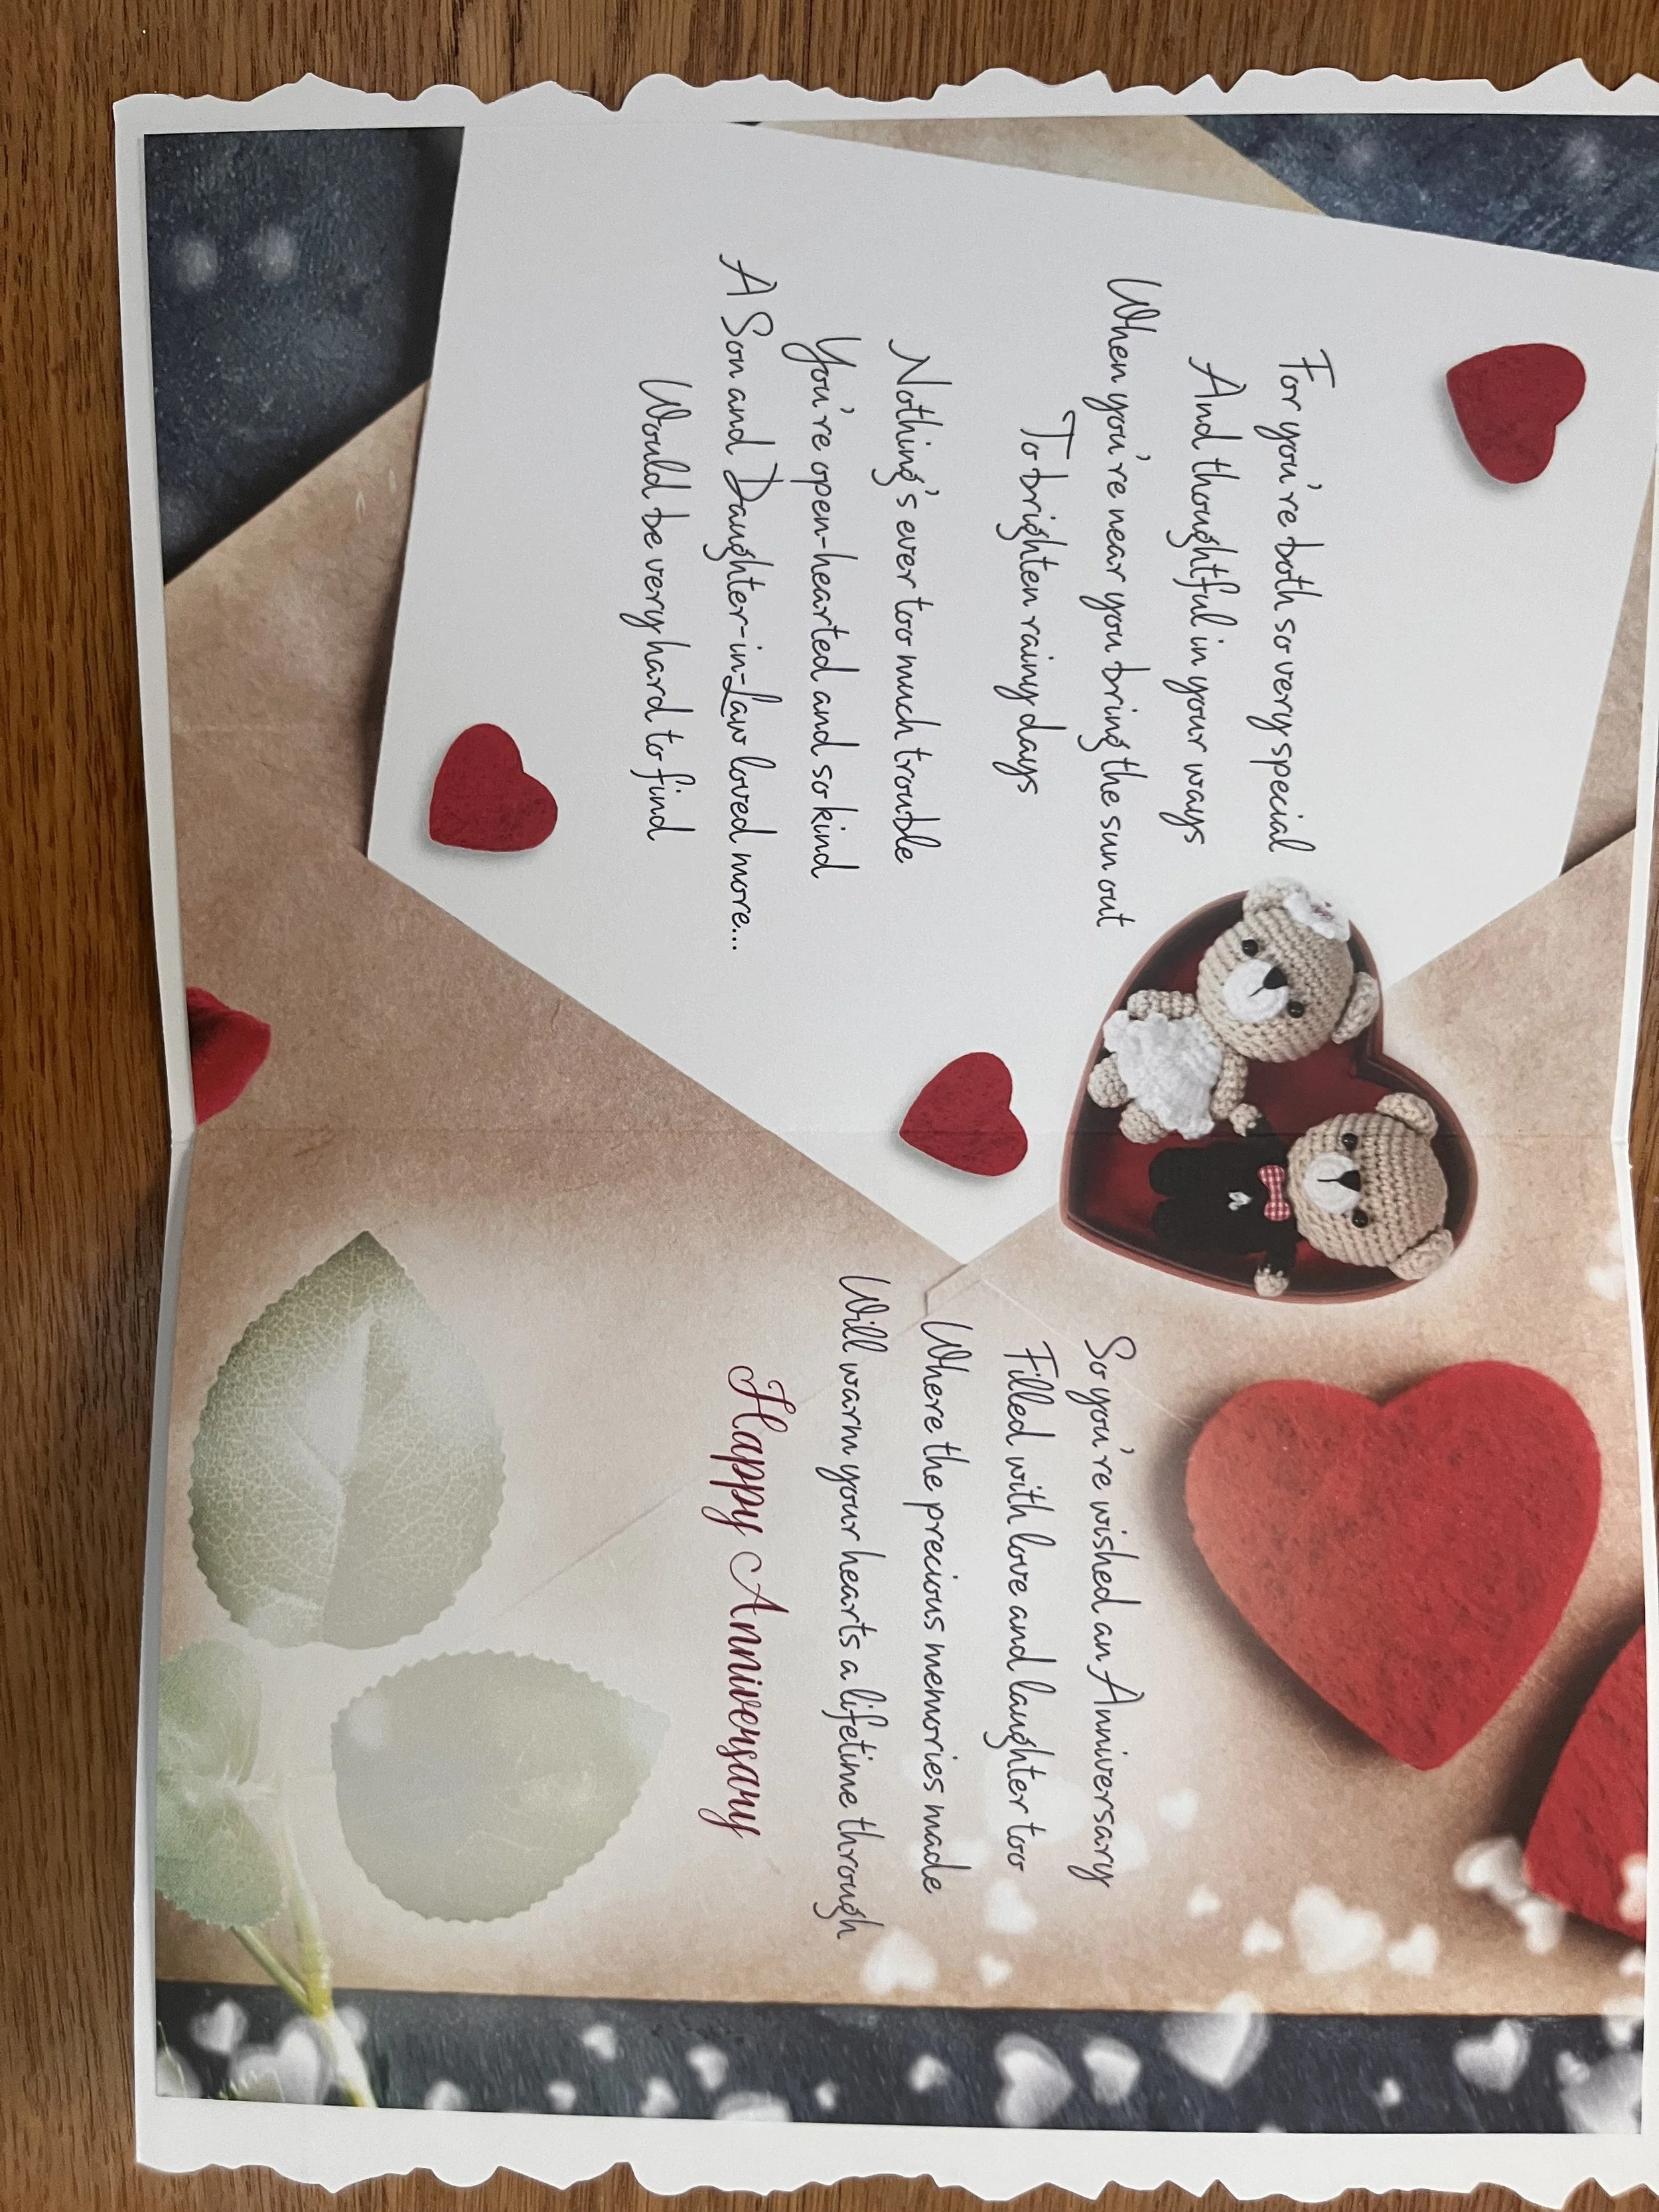 For you're both so very special
And thoughtful in your ways
When you're near you bring the sun out
To brighten rainy days
Nothing's ever too much trouble
You're open-hearted and so kind
A Son and Daughter-in-Law loved more...
Would be very hard to find
So you're wished an Anniversary
Filled with love and laughter too
Where the precious memories made
Will warm your hearts a lifetime through
Happy Anniversary